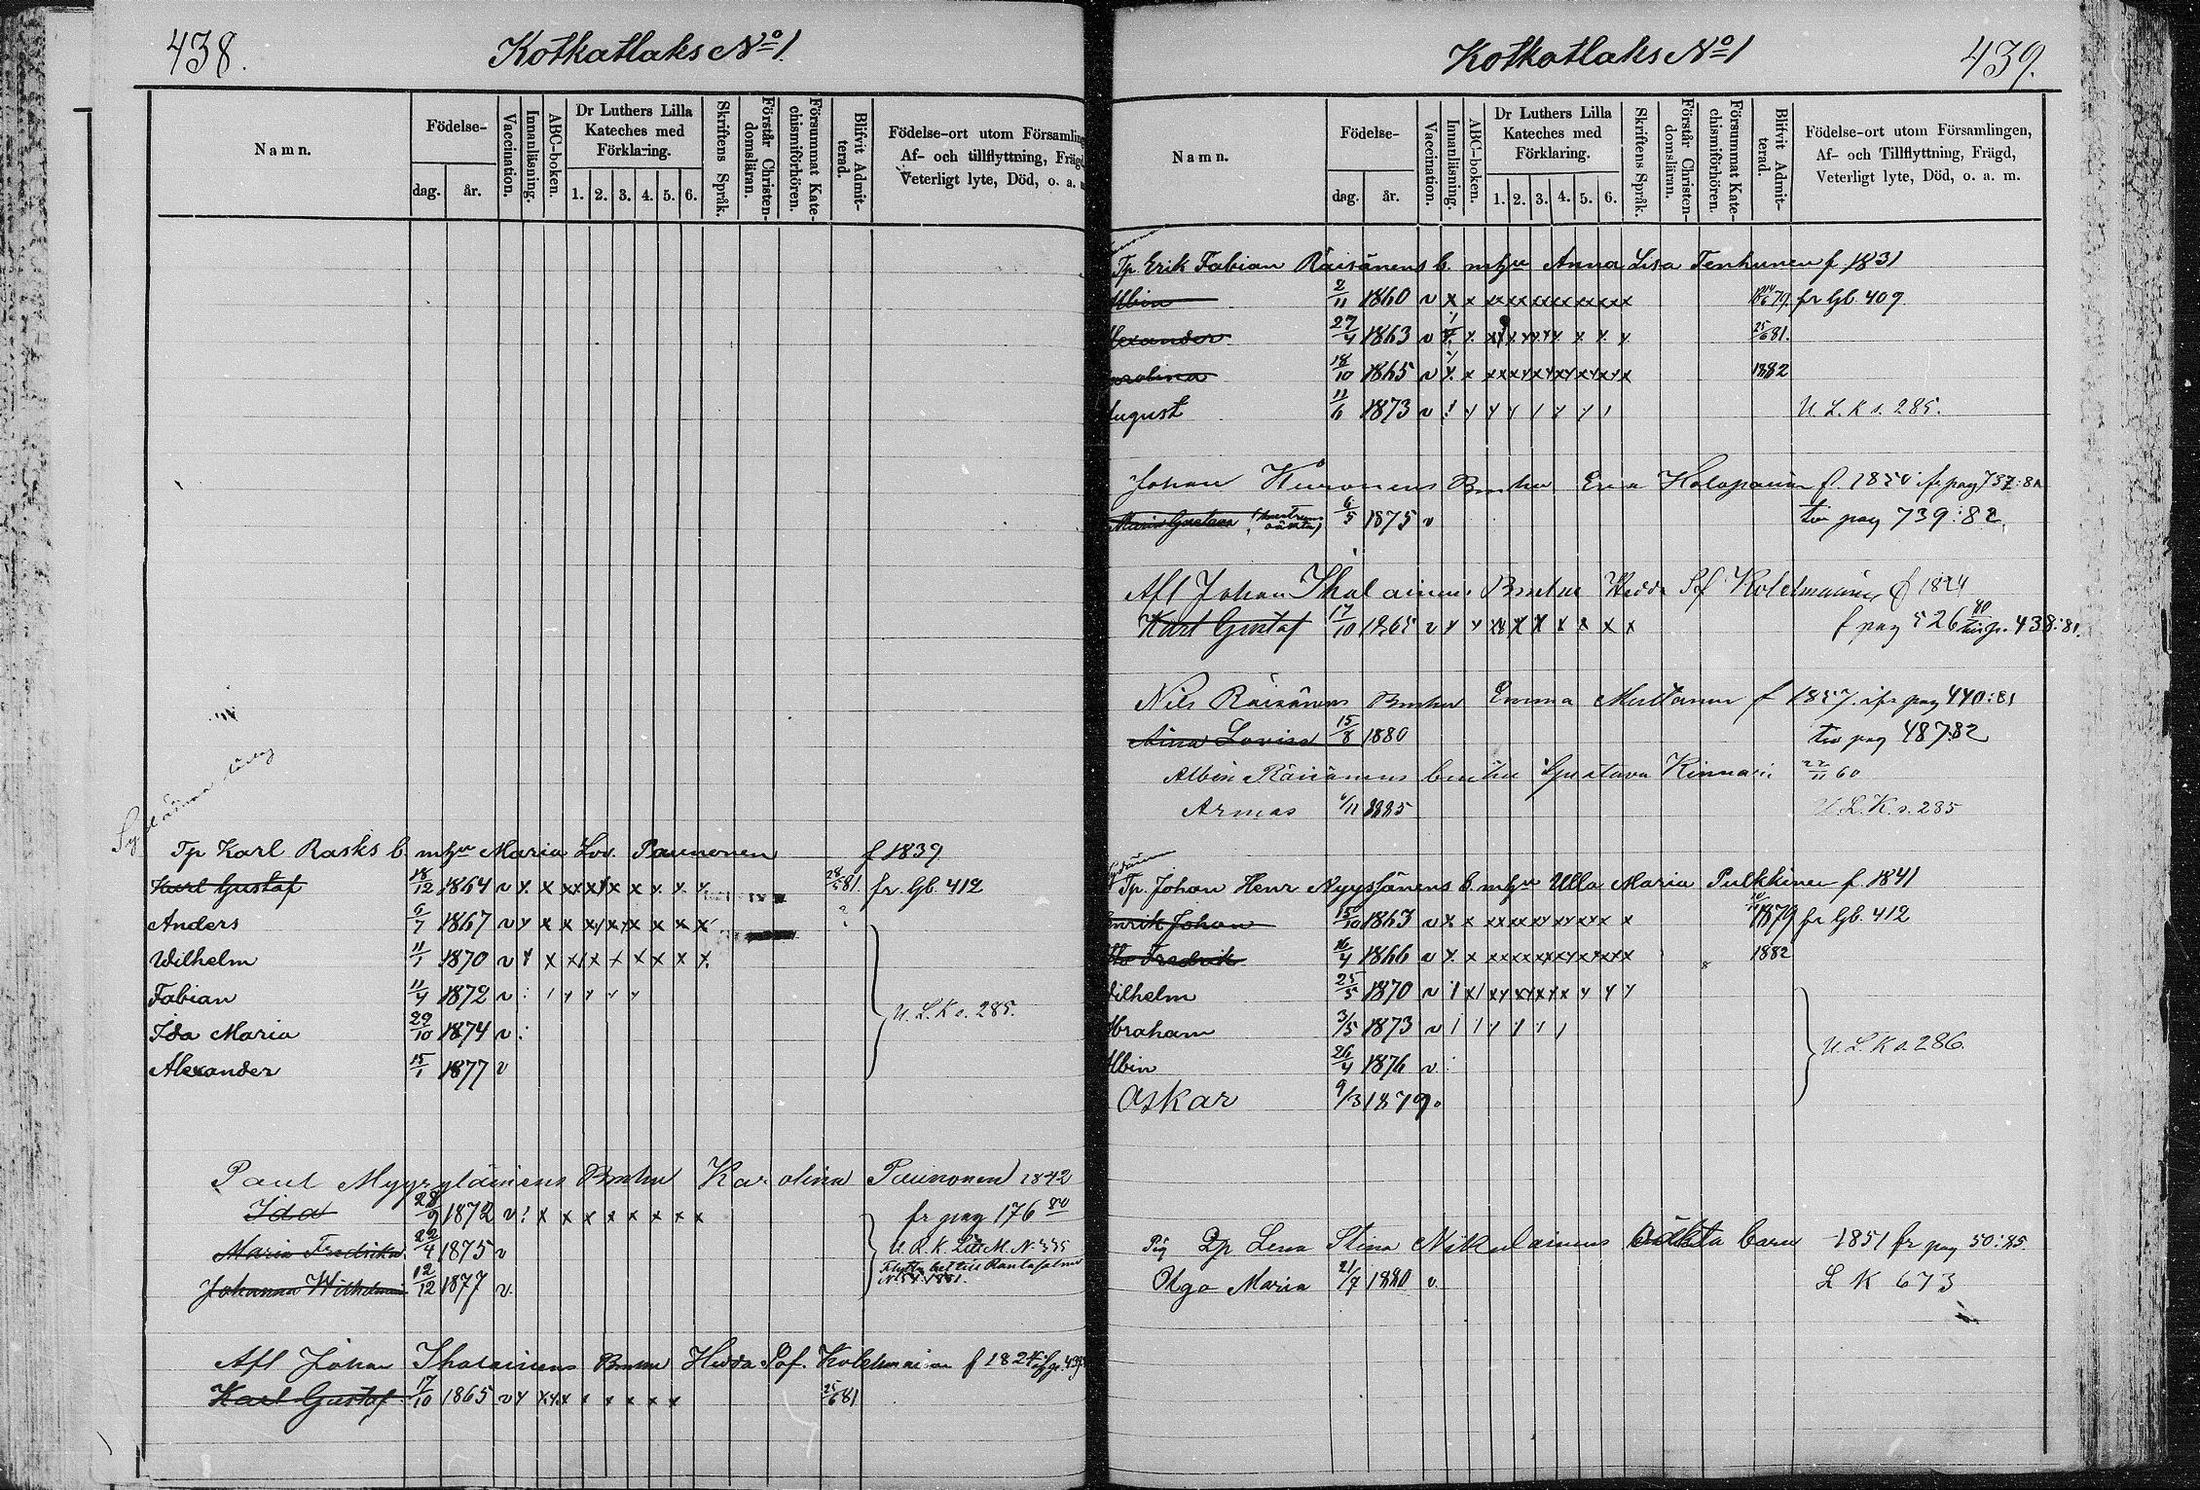 438.
Kotkatlaks No 1.
Namn.
Födelse-
dag. år.
Vaccination.
Innanläsning.
ABC-boken.
Dr Luthers Lilla Kateches med Förklaring.
1. 2. 3. 4. 5. 6.
Skriftens Språk.
Förstår Christendomsläran.
Försummat Katechismiförhören.
Blifvit Admitterad.
Födelse-ort utom Församling
Af- och tillflyttning, Frägd,
Veterligt lyte, Död, o. a. m
Tp Karl Rasks b. m hu Maria Lov. Paunonen f 1839
Karl Gustaf 18/12 1864 v 28/5 81. fr. Gb. 412
Anders 6/7 1867 v ?
Wilhelm 11/1 1870 v
Fabian 11/4 1872 v
U. L. K s. 285.
Ida Maria 29/10 1874 v
Alexander 15/1 1877 v
Paul Myyryläinens Bmhu Karolina Paunonen 1842
Ida 28/9 1872 v fr pag 176 80
Maria Fredrika 22/4 1875 v
Johanna Wilhelmina 12/12 1877 v.
Afl Johan Ihalainens Bmhu Hedda Sof. Kolehmainen f 1824
Karl Gustaf 17/10 1865 v 25/6 81
439.
Kotkatlaks No 1
Namn.
Födelse-
dag. år.
Vaccination.
Innanläsning.
ABC-boken.
Dr Luthers Lilla Kateches med Förklaring.
1. 2. 3. 4. 5. 6.
Skriftens Språk.
Förstår Christendomsläran.
Försummat Katechismiförhören.
Blifvit Admitterad.
Födelse-ort utom Församlingen,
Af- och Tillflyttning, Frägd,
Veterligt lyte, Död, o. a. m.
Tp. Erik Fabian Räisänens b. m hu Anna Lisa Tenhunen f. 1831
Albin 2/11 1860 v 79. fr Gb. 409
Alexander 27/4 1863 v 25/6 81.
Karolina 18/10 1865 v 1882
August 11/6 1873 v U. L. K s. 285.
Johan Kuronens Bmhu Eva Holopainen f. 1850 fr pag 737:82
Maria Gustava 6/5 1875 v
tio pag 739:82,
Afl Johan Ihalainens Bmhu Hedda Sof Kolehmainen f 1824
Karl Gustaf 17/10 1865 v f pag 526 80 438:81.
Nils Räisänens Bmhu Emma Multanen f 1857. fr pag 440:81
Aina Lovisa 15/8 1880 tio pag 487:82
Albin Räisänens bmhu Gustava Kinnari 22/11 60
Armas 6/11 1885 U L. K s. 285
Tp. Johan Henr Nyyssönens b. m hu Ulla Maria Pulkkinen f. 1841
Henrik Johan 15/10 1863 v 1879 fr Gb. 412
Otto Fredrik 16/4 1866 v 1882
Wilhelm 25/5 1870 v
Abraham 3/5 1873 v
U. L K s. 286.
Albin 26/4 1876 v.
Oskar 9/3 1879 v
Pig Dr Lena Stina Nikulainens Oäkta barn 1851 fr pag 50:85.
Olga Maria 21/7 1880 v. L K 673